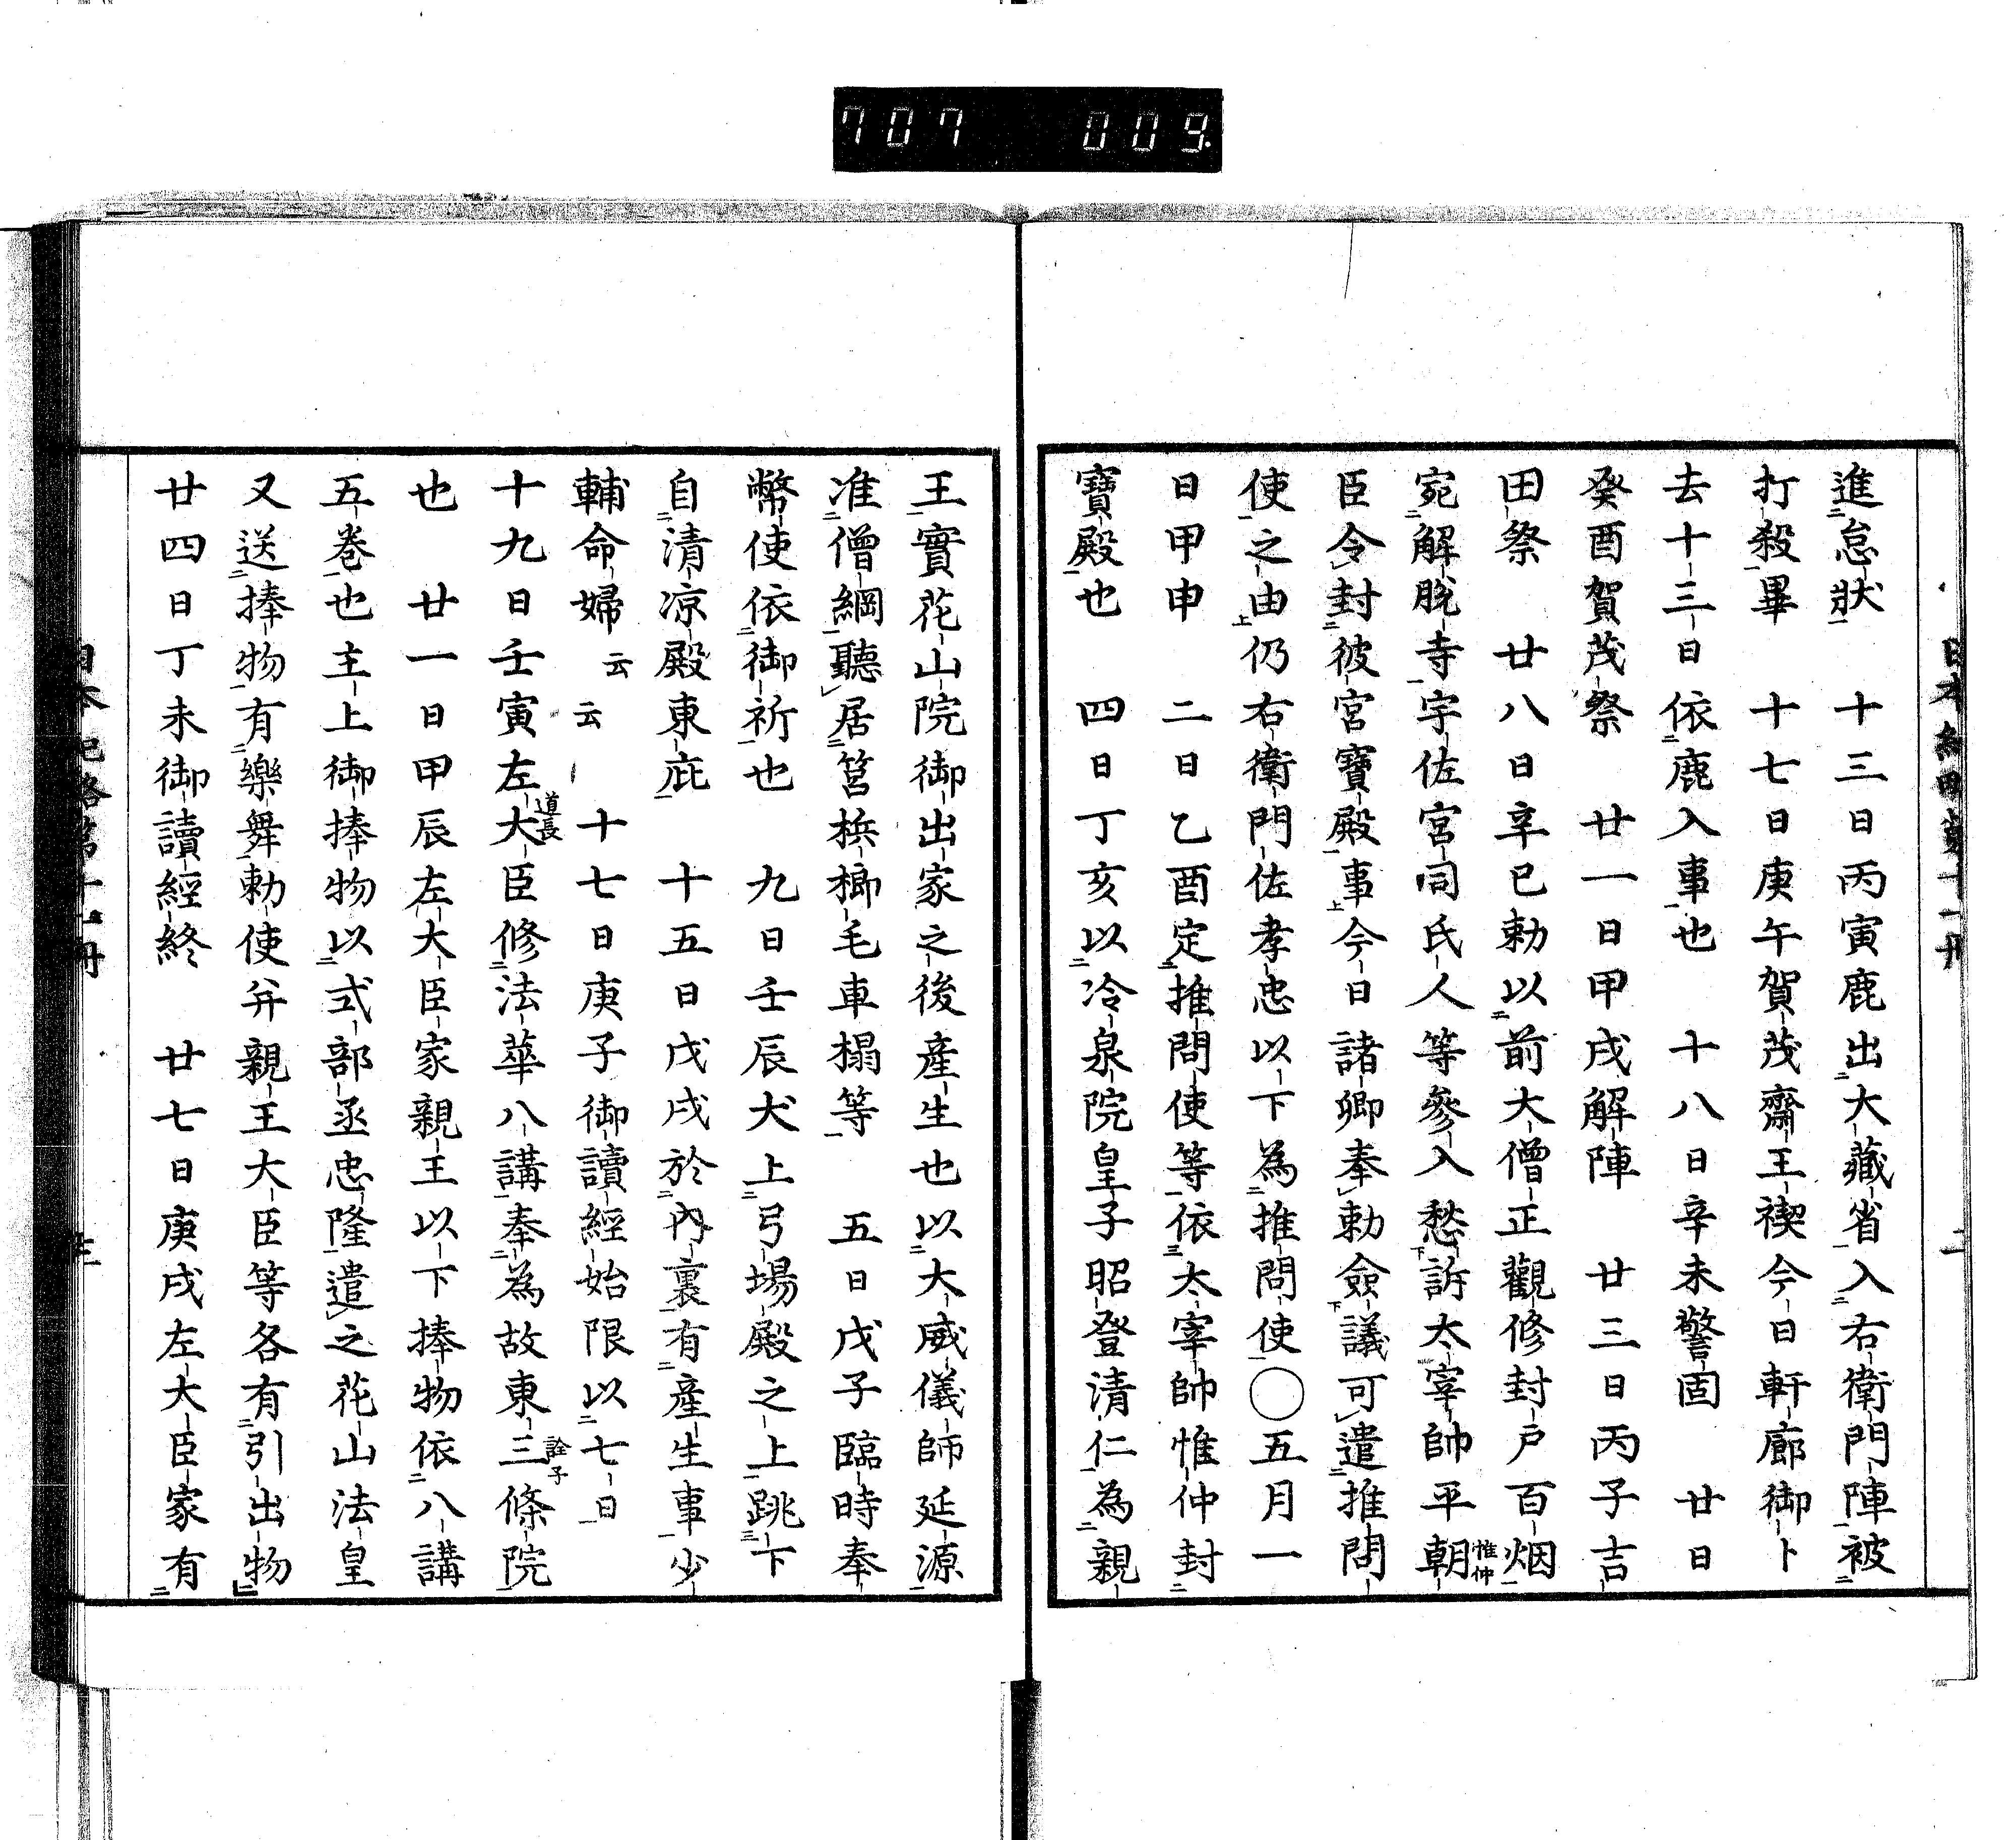 707 009.
日本紀略第十一冊 二
進怠狀 十三日丙寅鹿出大藏省入右衛門陣被
打殺畢 十七日庚午賀茂齋王禊今日軒廊御卜
去十三日依鹿入事也 十八日辛未警固 廿日
癸酉賀茂祭 廿一日甲戌解陣 廿三日丙子吉
田祭 廿八日辛巳勅以前大僧正觀修封戶百烟
宛解脫寺宇佐宮司氏人等參入愁訴太宰帥平朝惟仲
臣令封彼宮寶殿事今日諸卿奉勅僉議可遣推問
使之由仍右衛門佐孝忠以下為推問使〇五月一
日甲申 二日乙酉定推問使等依太宰帥惟仲封
寶殿也 四日丁亥以冷泉院皇子昭登清仁為親
王實花山院御出家之後產生也以大威儀師延源
准僧綱聽居筥梹榔毛車榻等 五日戊子臨時奉
幣使依御祈也 九日壬辰犬上弓場殿之上跳下
自清凉殿東庇 十五日戊戌於內裏有產生事少
輔命婦云云 十七日庚子御讀經始限以七日
十九日壬寅左大道長臣修法華八講奉為故東三詮子條院
也 廿一日甲辰左大臣家親王以下捧物依八講
五巻也主上御捧物以式部丞忠隆遣之花山法皇
又送捧物有樂舞勅使并親王大臣等各有引出物
廿四日丁未御讀經終 廿七日庚戌左大臣家有
日本紀略第十一冊 三